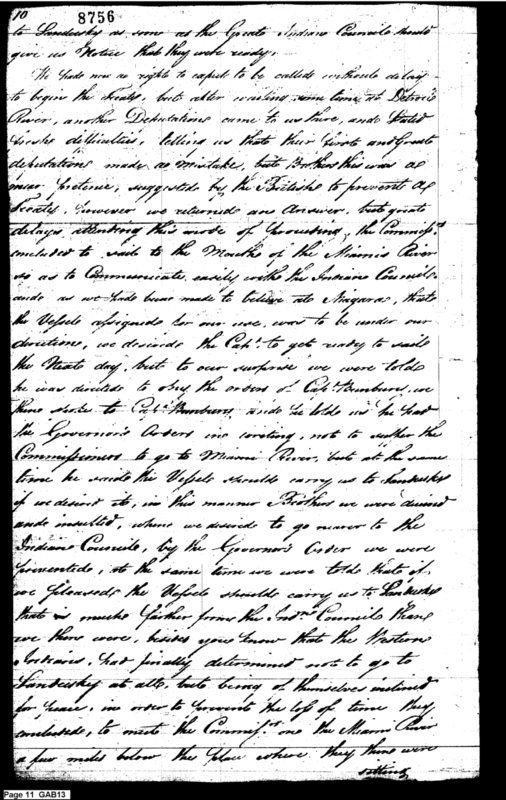 10 8756
to Sandusky as soon as the Great Indian Council should
give us Notice that they were ready.
We had now a right to expect to be called without delay
to begin the Treaty, but after waiting some time at Detroit
River, another Deputation came to us there, and stated
fresh difficulties, telling us that their first and Great
deputation made a Mistake, but Brothers this was a
mear pretence, suggested by the British to prevent a
Treaty, however we returned an Answer, but great
delays attending this mode of proceeding, the Commissrs
concluded to sail to the Mouth of the Miamis River
so as to Communicate easily with the Indian Council
and as we had been made to believe at Niagara, that
the Vessel assigned for our use, was to be under our
direction, we desired the Capt. to get ready to sail
the Next day, but to our surprise we were told
he was directed to obey the orders of Capt. Bunbury, we
then spoke to Capt. Bunbury and he told us he had
the Governor's Orders in writing, not to suffer the
Commissioners to go to Miami River, but at the same
time he said the Vessel should carry us to Sandusky
if we desired it, in this manner Brothers we were denied
and insulted, when we desired to go nearer to the
Indian Council, by the Governor's Order we were
prevented, at the same time we were told that if
we pleased the Vessel should carry us to Sandusky
that is much farther from the Indn. Council than
we then were, besides you know that the Western
Indians, had finally determined not to go to
Sandusky at all, but being of themselves inclined
for peace, in order to prevent the loss of time they
concluded, to meet the Commissrs. on the Miami River
a few miles below the place where they then were
sitting
Page 11 GAB13